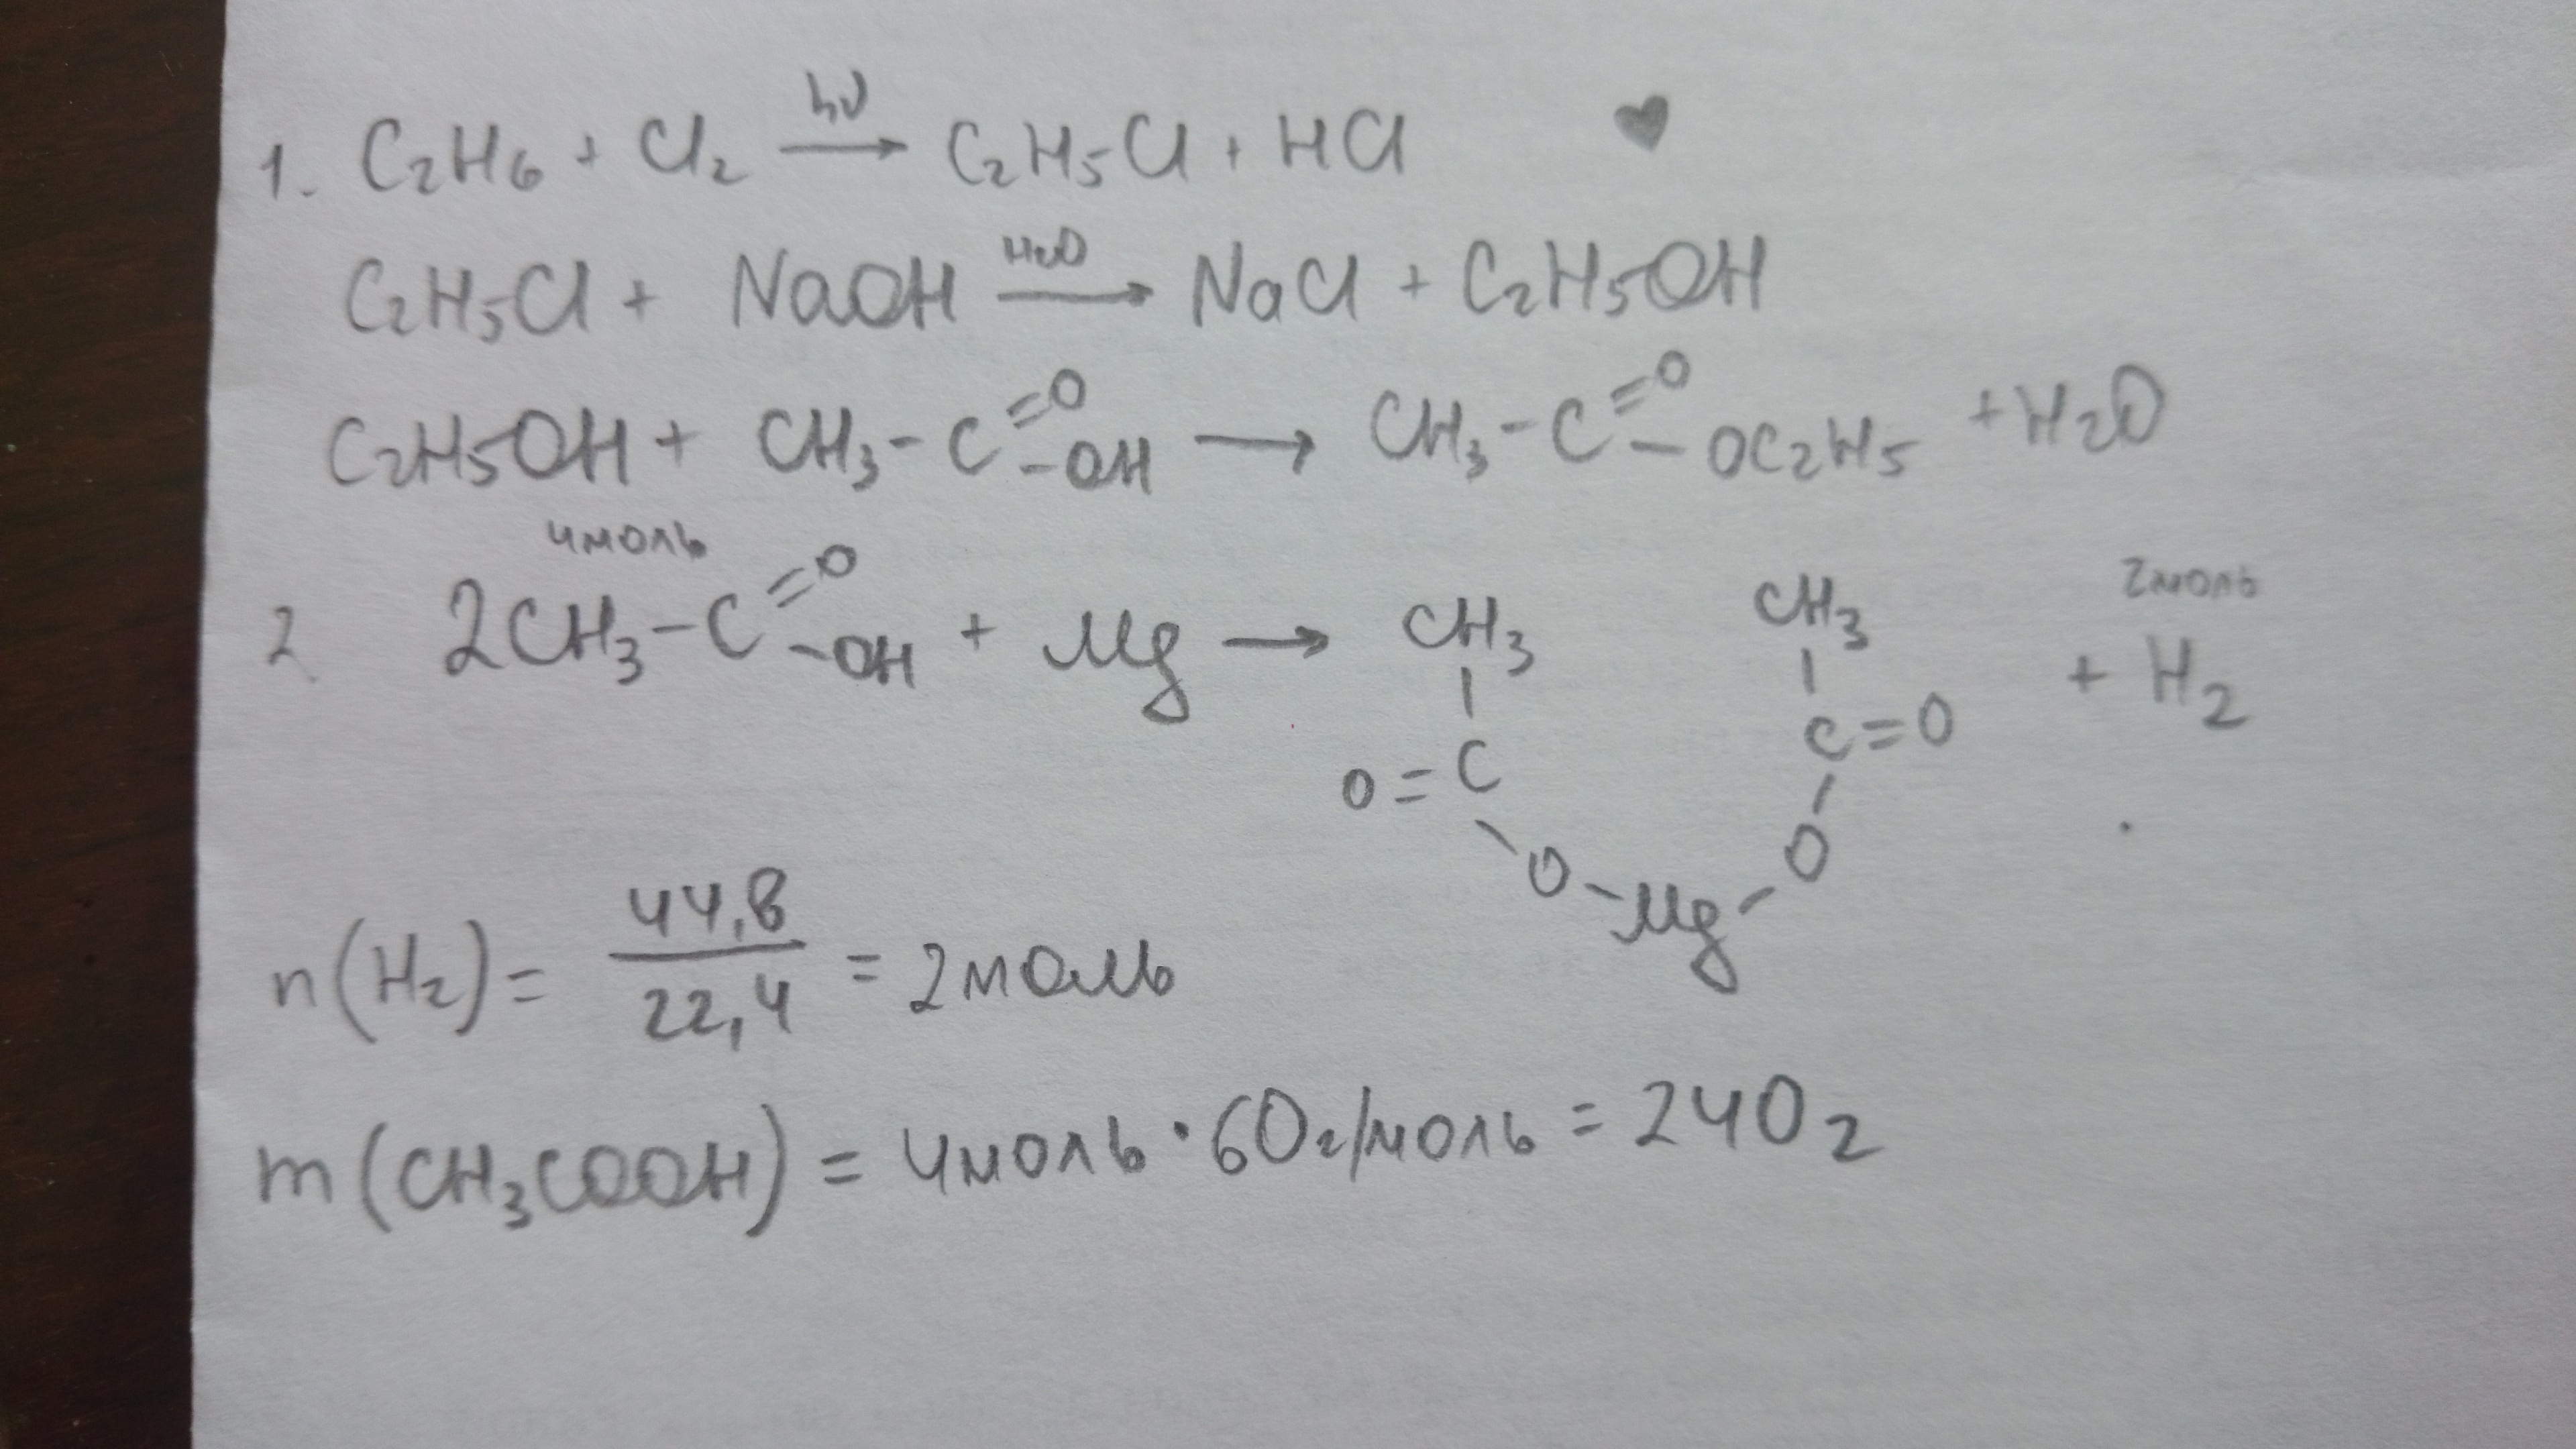 1. C2H6 + Cl2 hν→ C2H5Cl + HCl ♥
C2H5Cl + NaOH H2O→ NaCl + C2H5OH
C2H5OH + CH3-C=O-OH → CH3-C=O-OC2H5 + H2O
4моль 2моль
2 2CH3-C=O-OH + Mg → CH3 CH3 + H2
O=C C=O
O-Mg-O
n(H2) = 44,8/22,4 = 2моль
m(CH3COOH) = 4моль·60г/моль = 240г